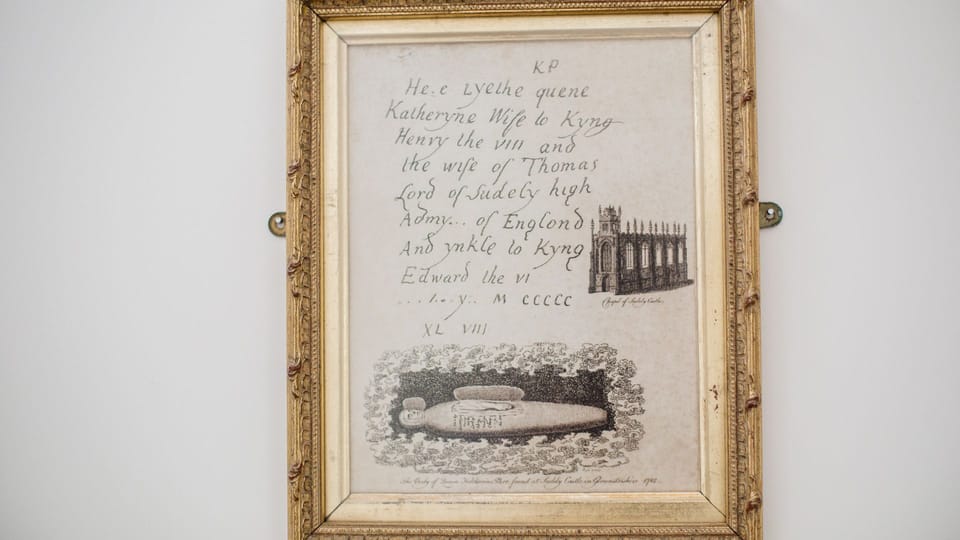 KP
He.e Lyethe quene
Katheryne Wife to Kyng
Henry the VIII and
the wife of Thomas
Lord of Sudely high
Admy... of Englond
And ynkle to Kyng
Edward the VI
...l..y.. M CCCCC
XL VIII
Chapel of Sudely Castle.
The Body of Queen Katherine Parr found at Sudely Castle in Gloucestershire 1782